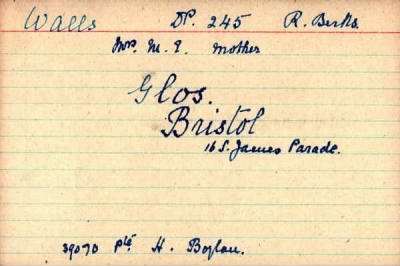 Walls DP. 245 R. Berks.
Mrs. M. E. Mother
Glos.
Bristol
16 St. James Parade.
39070 Pte H. Boylan.